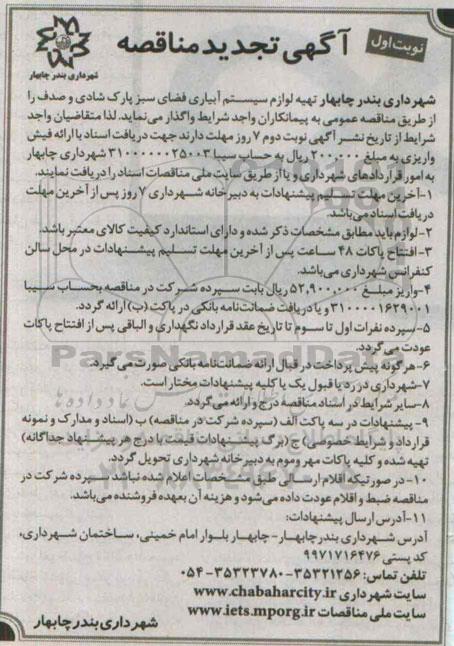 نوبت اول
آگهی تجدید مناقصه
شهرداری بندر چابهار
شهرداری بندر چابهار تهیه لوازم سیستم آبیاری فضای سبز پارک شادی و صدف را
از طریق مناقصه عمومی به پیمانکاران واجد شرایط واگذار می‌نماید. لذا متقاضیان واجد
شرایط از تاریخ نشر آگهی نوبت دوم ۷ روز مهلت دارند جهت دریافت اسناد با ارائه فیش
واریزی به مبلغ ۲۰۰,۰۰۰ ریال به حساب سیبا ۳۱۰۰۰۰۰۰۲۵۰۰۳ شهرداری چابهار
به امور قراردادهای شهرداری و یا از طریق سایت ملی مناقصات اسناد را دریافت نمایند.
۱-آخرین مهلت تسلیم پیشنهادات به دبیرخانه شهرداری ۷ روز پس از آخرین مهلت
دریافت اسناد می‌باشد.
۲-لوازم باید مطابق مشخصات ذکر شده و دارای استاندارد کیفیت کالای معتبر باشد.
۳-افتتاح پاکات ۴۸ ساعت پس از آخرین مهلت تسلیم پیشنهادات در محل سالن
کنفرانس شهرداری می‌باشد.
۴-واریز مبلغ ۵۲,۹۰۰,۰۰۰ ریال بابت سپرده شرکت در مناقصه بحساب سیبا
۳۱۰۰۰۰۱۶۲۹۰۰۱ و یا دریافت ضمانت‌نامه بانکی در پاکت (ب) ارائه گردد.
۵-سپرده نفرات اول تا سوم تا تاریخ عقد قرارداد نگهداری و الباقی پس از افتتاح پاکات
عودت می‌گردد.
۶-هرگونه پیش پرداخت در قبال ارائه ضمانت‌نامه بانکی صورت می‌گیرد.
۷-شهرداری در رد یا قبول یک یا کلیه پیشنهادات مختار است.
۸-سایر شرایط در اسناد مناقصه درج و ارائه می‌گردد.
۹- پیشنهادات در سه پاکت الف (سپرده شرکت در مناقصه) ب (اسناد و مدارک و نمونه
قرارداد و شرایط خصوصی) ج (برگ پیشنهادات قیمت با درج هر پیشنهاد جداگانه)
تهیه شده و کلیه پاکات مهر و موم به دبیرخانه شهرداری تحویل گردد.
۱۰- در صورتیکه اقلام ارسالی طبق مشخصات اعلام شده نباشد سپرده شرکت در
مناقصه ضبط و اقلام عودت داده می‌شود و هزینه آن بعهده فروشنده می‌باشد.
۱۱-آدرس ارسال پیشنهادات:
آدرس شهرداری بندر چابهار- چابهار بلوار امام خمینی، ساختمان شهرداری،
کد پستی ۹۹۷۱۷۱۶۴۷۶
تلفن تماس: ۳۵۳۲۱۲۵۶-۳۵۳۲۳۷۸۰-۰۵۴
سایت شهرداری www.chabaharcity.ir
سایت ملی مناقصات www.iets.mporg.ir
شهرداری بندر چابهار
ParsNamadData